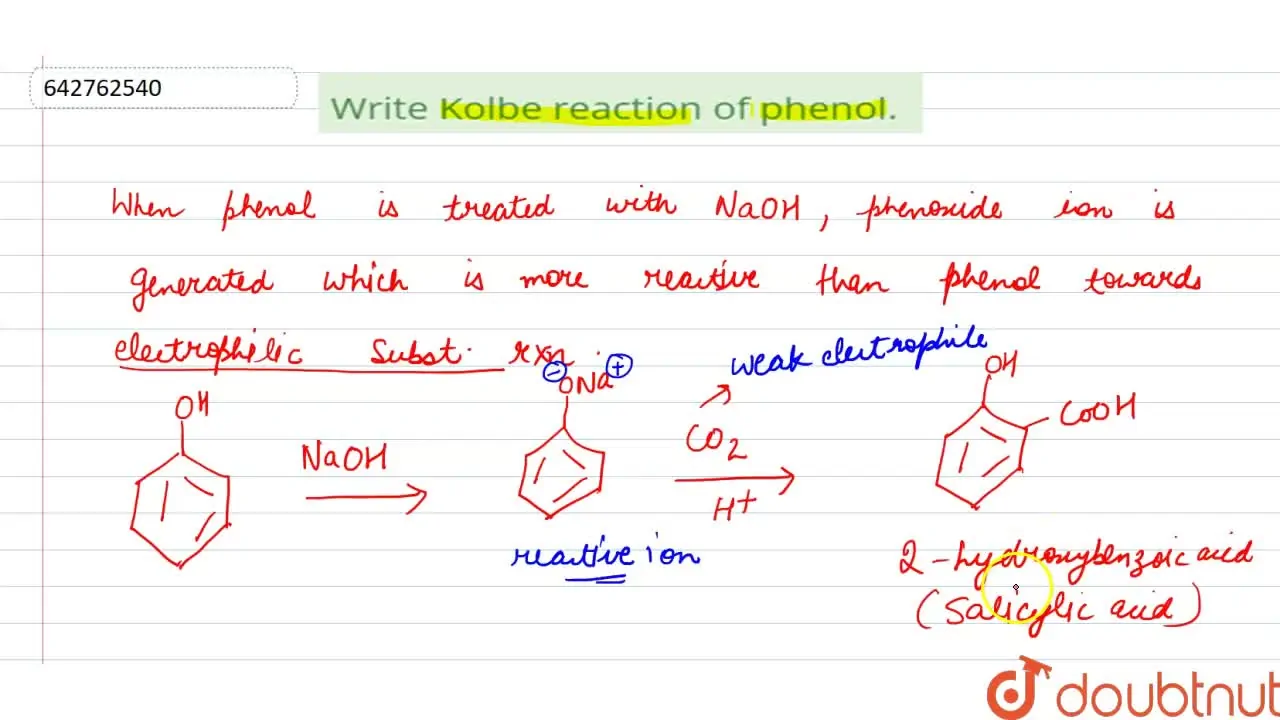 642762540
Write Kolbe reaction of phenol.
When phenol is treated with NaOH, phenoxide ion is
generated which is more reactive than phenol towards
electrophilic Subst. rxn.
weak electrophile
OH
NaOH
⊖ ⊕
ONa
CO2
H+
OH
COOH
reactive ion
2-hydroxybenzoic acid
(Salicylic acid)
doubtnut